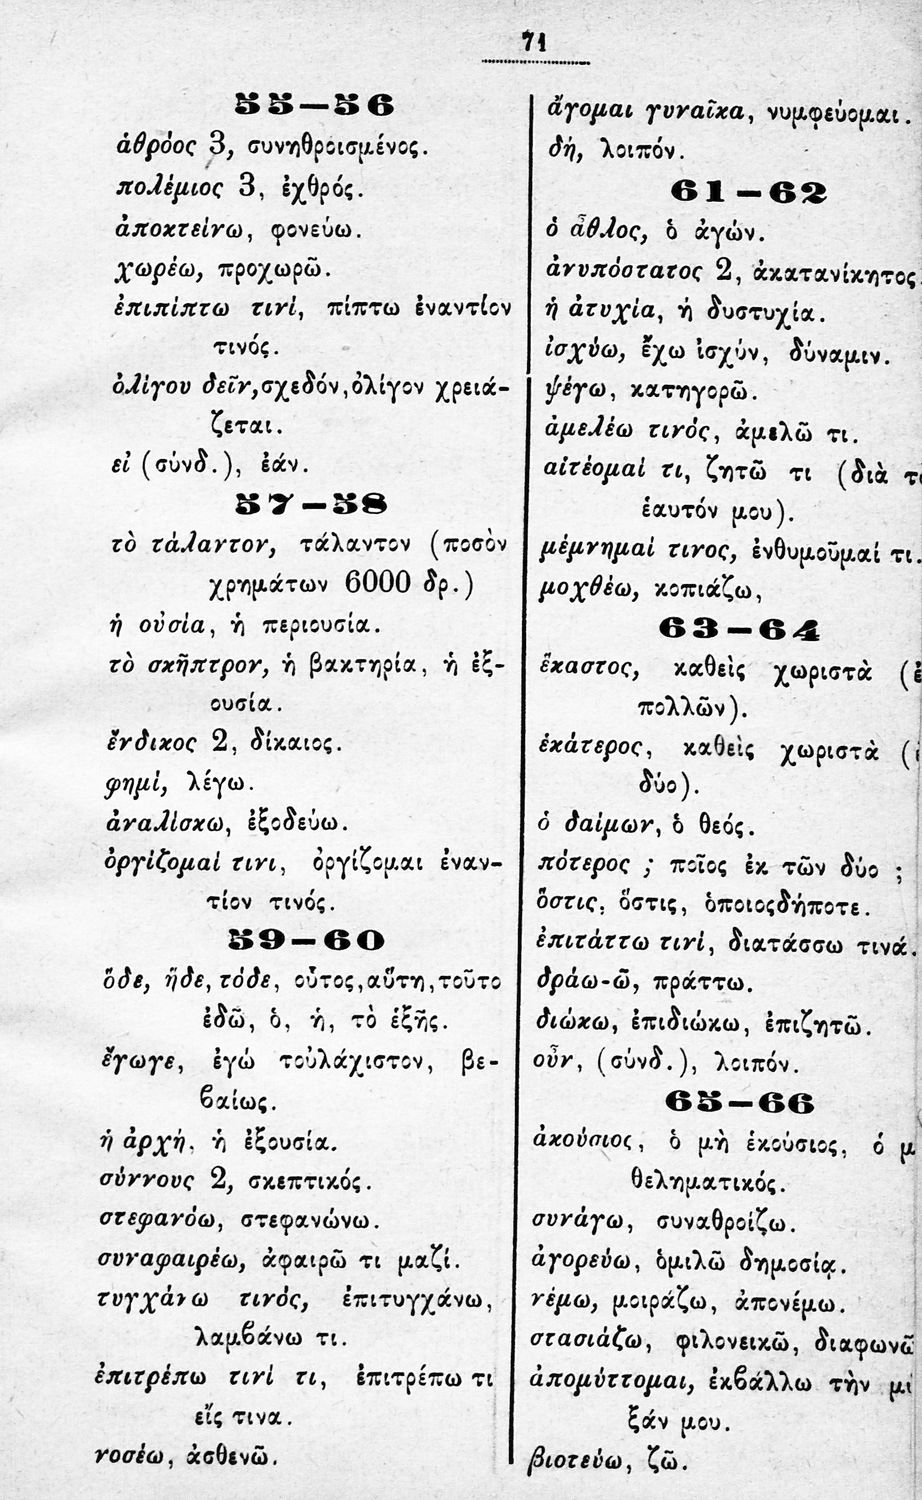 71
55—56
ἀθρόος 3, συνηθροισμένος.
πολέμιος 3, ἐχθρός.
ἀποκτείνω, φονεύω.
χωρέω, προχωρῶ.
ἐπιπίπτω τινί, πίπτω ἐναντίον
τινός.
ὀλίγου δεῖν,σχεδόν,ὀλίγον χρειά-
ζεται.
εἰ (σύνδ.), ἐάν.
57—58
τὸ τάλαντον, τάλαντον (ποσὸν
χρημάτων 6000 δρ.)
ἡ οὐσία, ἡ περιουσία.
τὸ σκῆπτρον, ἡ βακτηρία, ἡ ἐξ-
ουσία.
ἔνδικος 2, δίκαιος.
φημί, λέγω.
ἀναλίσκω, ἐξοδεύω.
ὀργίζομαί τινι, ὀργίζομαι ἐναν-
τίον τινός.
59—60
ὅδε, ἥδε, τόδε, οὗτος,αὕτη,τοῦτο
ἐδῶ, ὁ, ἡ, τὸ ἑξῆς.
ἔγωγε, ἐγώ τοὐλάχιστον, βε-
βαίως.
ἡ ἀρχή, ἡ ἐξουσία.
σύννους 2, σκεπτικός.
στεφανόω, στεφανώνω.
συναφαιρέω, ἀφαιρῶ τι μαζί.
τυγχάνω τινός, ἐπιτυγχάνω,
λαμβάνω τι.
ἐπιτρέπω τινί τι, ἐπιτρέπω τι
εἴς τινα.
νοσέω, ἀσθενῶ.
ἄγομαι γυναῖκα, νυμφεύομαι.
δή, λοιπόν.
61—62
ὁ ἆθλος, ὁ ἀγών.
ἀνυπόστατος 2, ἀκατανίκητος.
ἡ ἀτυχία, ἡ δυστυχία.
ἰσχύω, ἔχω ἰσχύν, δύναμιν.
ψέγω, κατηγορῶ.
ἀμελέω τινός, ἀμελῶ τι.
αἰτέομαί τι, ζητῶ τι (διὰ
ἑαυτόν μου).
μέμνημαί τινος, ἐνθυμοῦμαί τι.
μοχθέω, κοπιάζω,
63—64
ἕκαστος, καθεὶς χωριστὰ
πολλῶν).
ἑκάτερος, καθεὶς χωριστὰ
δύο).
ὁ δαίμων, ὁ θεός.
πότερος ; ποῖος ἐκ τῶν δύο ;
ὅστις, ὅστις, ὁποιοςδήποτε.
ἐπιτάττω τινί, διατάσσω τινά.
δράω-ῶ, πράττω.
διώκω, ἐπιδιώκω, ἐπιζητῶ.
οὖν, (σύνδ.), λοιπόν.
65—66
ἀκούσιος, ὁ μὴ ἑκούσιος, ὁ
θεληματικός.
συνάγω, συναθροίζω.
ἀγορεύω, ὁμιλῶ δημοσίᾳ.
νέμω, μοιράζω, ἀπονέμω.
στασιάζω, φιλονεικῶ, διαφωνῶ
ἀπομύττομαι, ἐκβάλλω τὴν
ξάν μου.
βιοτεύω, ζῶ.